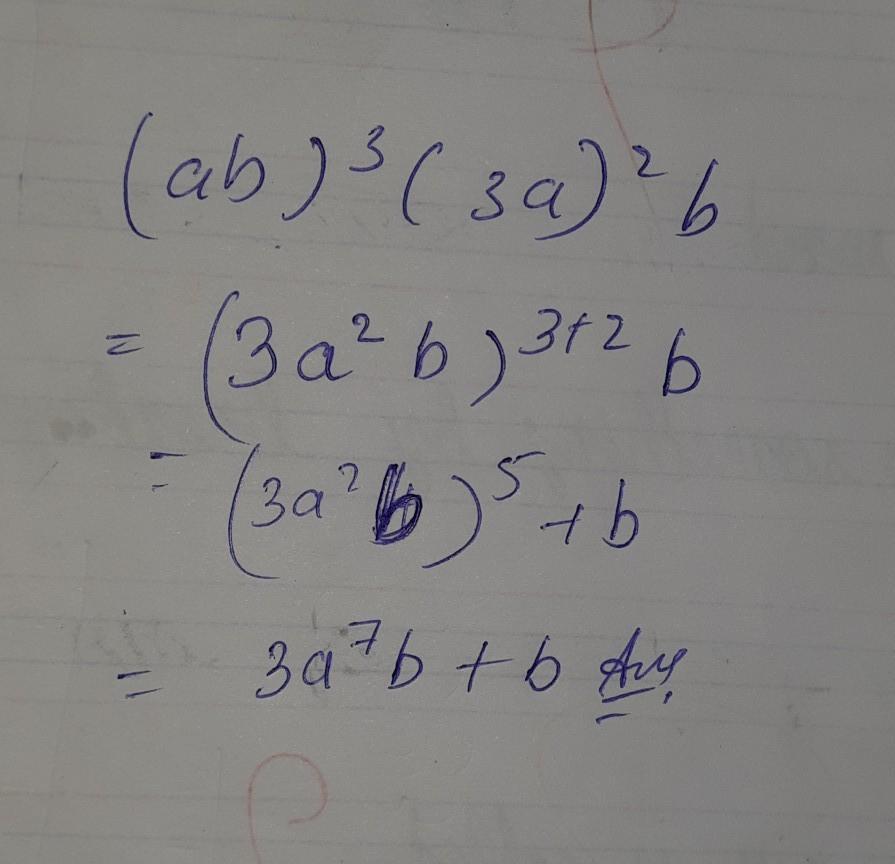 (ab)³(3a)²b
= (3a²b)³⁺²b
= (3a²b)⁵+b
= 3a⁷b+b Ans.